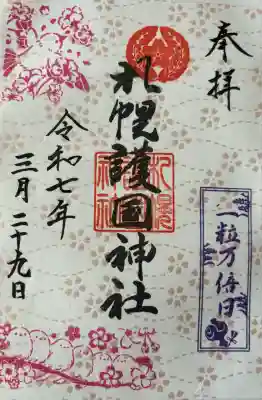 奉拝
札幌護国神社
令和七年
三月二十九日
一粒万倍日